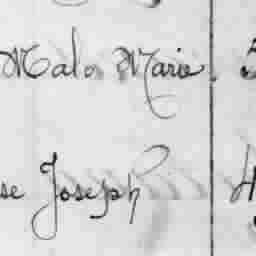 Malo Marie
se Joseph